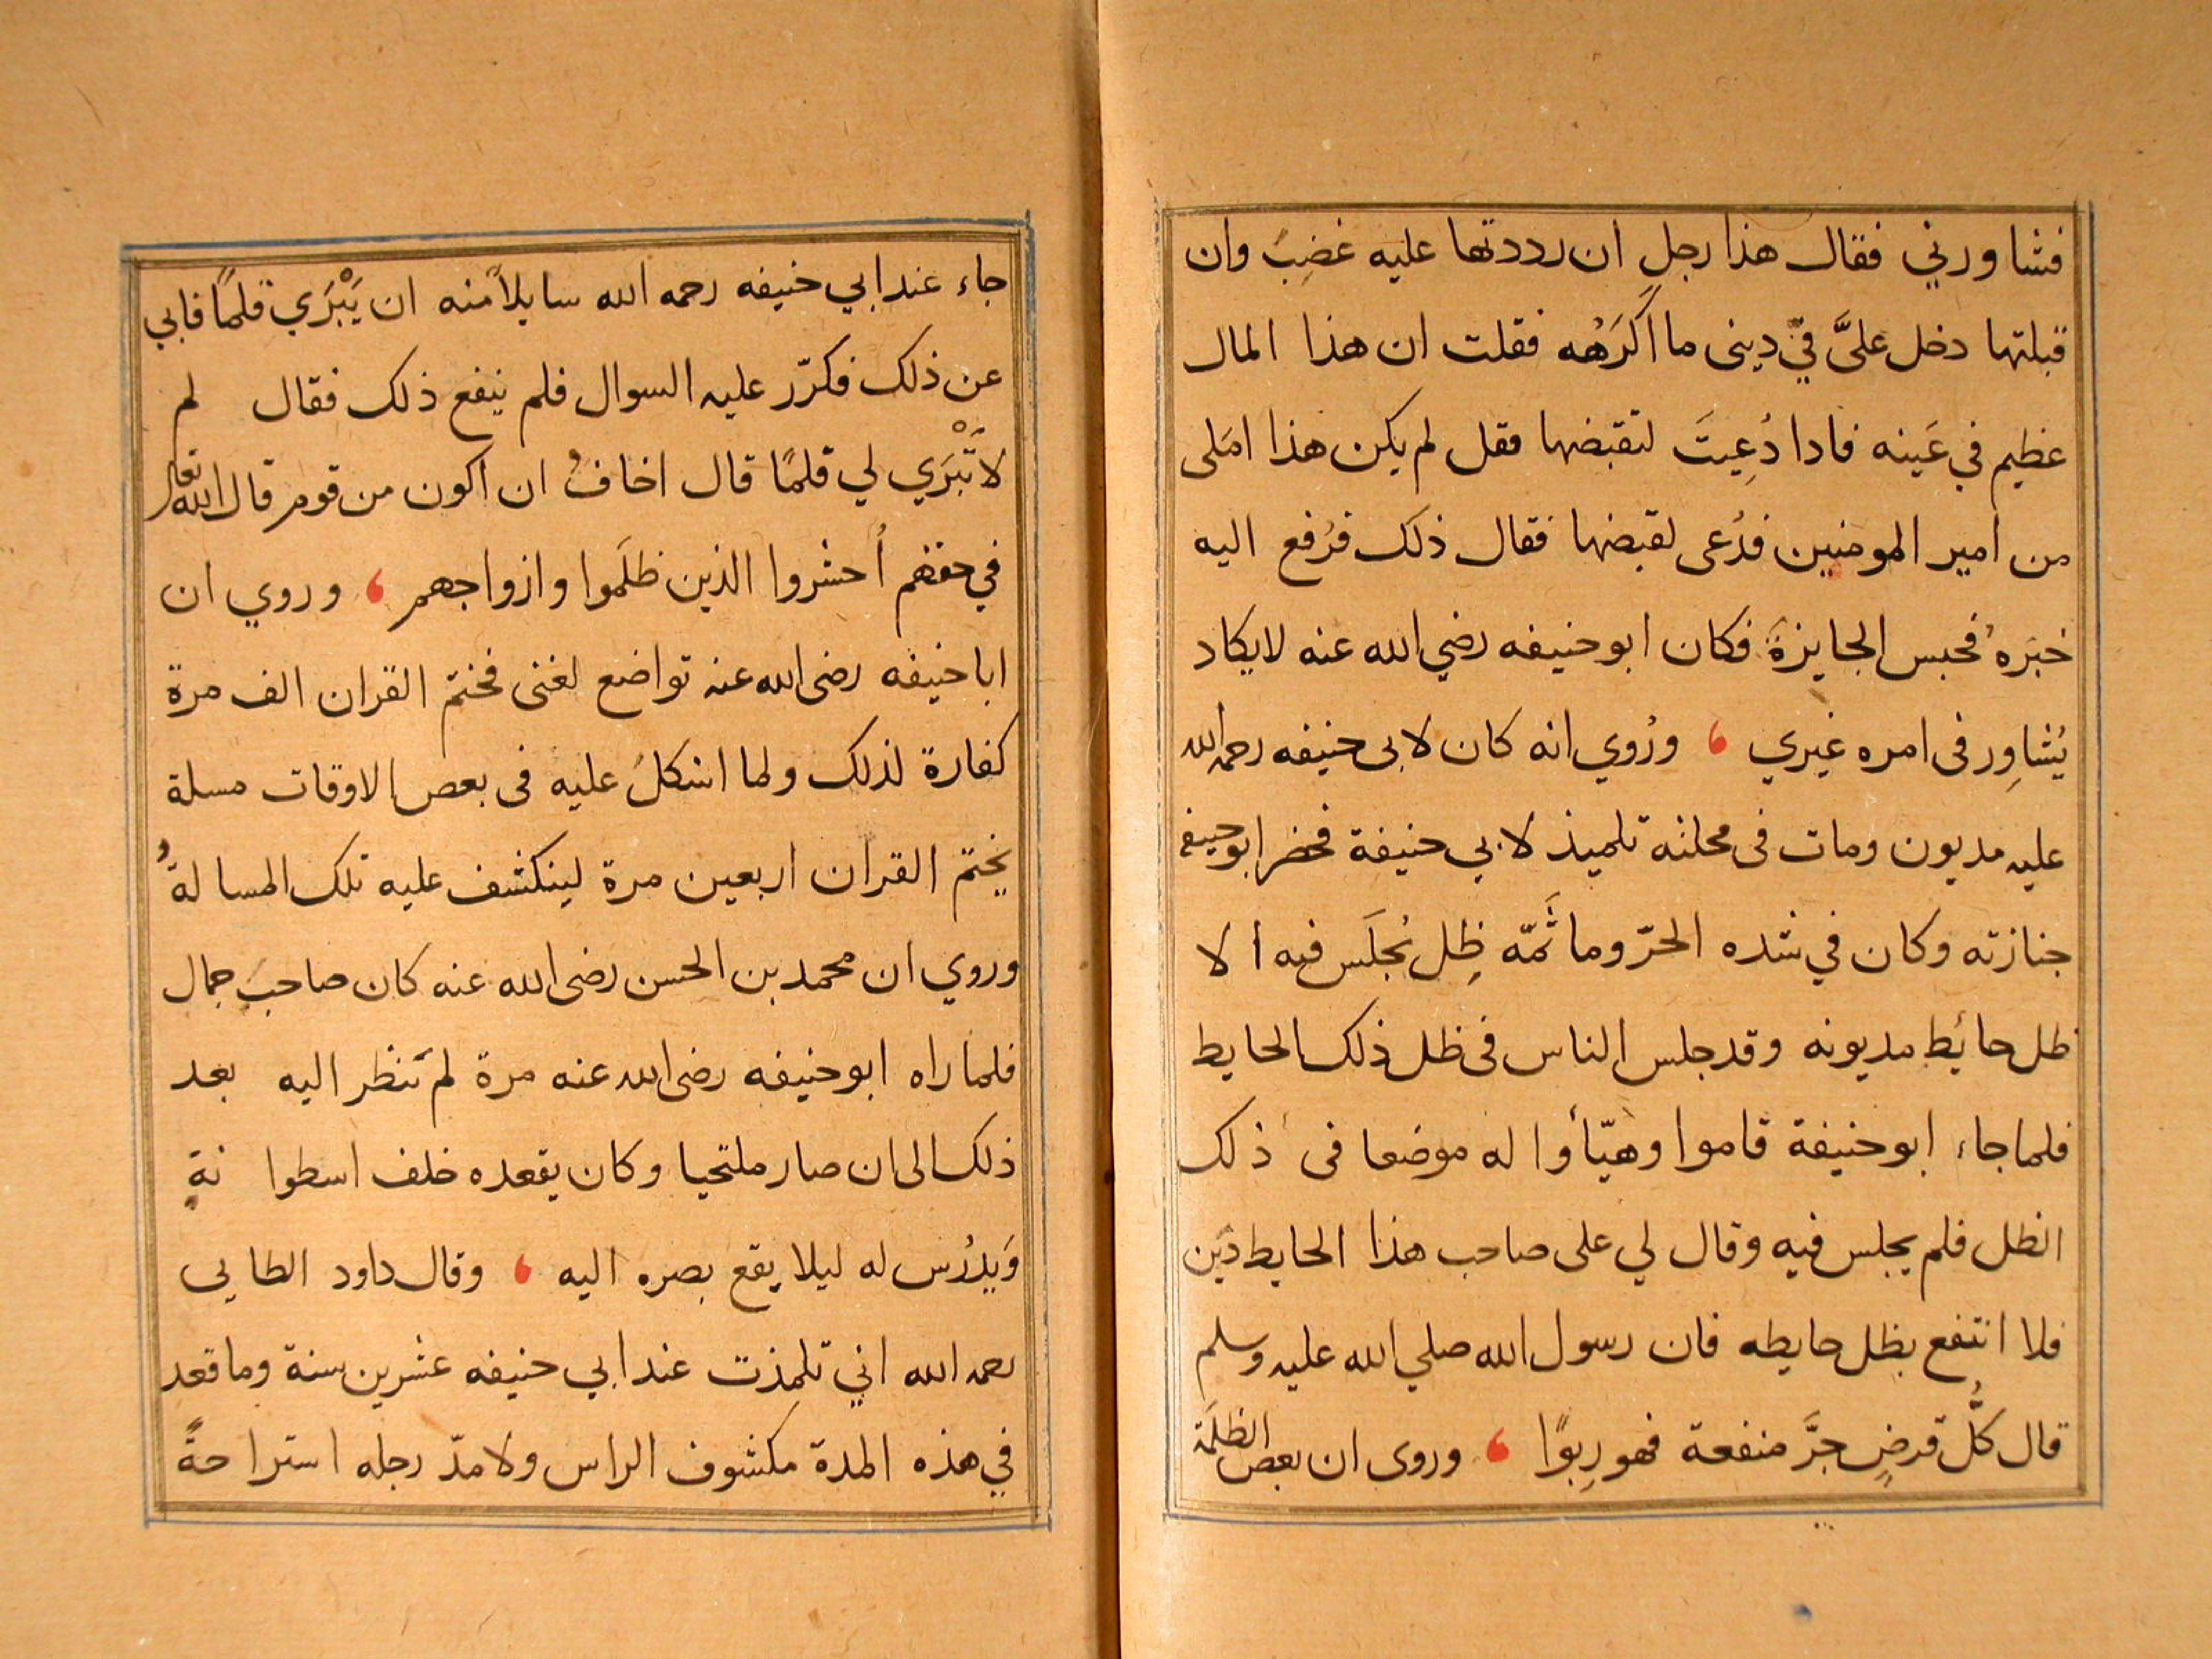 فشاورني فقال هذا رجل ان رددتها عليه غضِبَ وان
قبلتها دخل عليَّ فيّ دينى ما اَكَرَهُه فقلت ان هذا المال
عظيم في عَينه فادا دُعِيتَ لتقبضها فقل لم يكن هذا امَلى
من امير المومنين فدُعى لقبضها فقال ذلك فرُفع اليه
خبَرهُ فحبس الجايزةَ فكان ابو حنيفه رضي الله عنه لا يكاد
يُشاوِر فى امره غيري ، ورُوي انه كان لابى حنيفه رحمه الله
عليه مديون ومات فى محلته تلميذ لابي حنيفة فحضر ابو حنيفه
جنازته وكان في شده الحرّ وما ثَمّه ظِل يُجلَس فيه الا
ظل حائط مديونه وقد جلس الناس فى ظل ذلك الحايط
فلما جاء ابو حنيفة قاموا وهيّأوا له موضعا فى ذلك
الظل فلم يجلس فيه وقال لي على صاحب هذا الحايط دَين
فلا انتفع بظل حايطه فان رسول الله صلي الله عليه وسلم
قال كُّل قرضٍ جرَّ منفعة فهو رِبوًا ، وروى ان بعض الظلَمَة
جاء عند ابي حنيفه رحمه الله سايلاً منه ان يَبْرَي قلمًا فابي
عن ذلك فكرّر عليه السوال فلم ينفع ذلك فقال لم
لا تَبْرَي لي قلمًا قال اخافُ ان اكون من قوم قال الله تعالى
في حقهم أُحشروا الذين ظلَموا وازواجهم ، وروي ان
ابا حنيفه رضى الله عنه تواضع لغنى فختم القران الف مرة
كفارة لذلك ولما اشكلُ عليه فى بعض الاوقات مسلة
يختم القران اربعين مرة لينكشف عليه تلك المسالةُ
وروي ان محمد بن الحسن رضى الله عنه كان صاحبَ جمال
فلما راه ابو حنيفه رضى الله عنه مرة لم يَنظر اليه بعد
ذلك الى ان صار ملتحيا وكان يقعده خلف اسطوانةٍ
وَيدُرُس له ليلا يقع بصره اليه ، وقال داود الطايى
رحمه الله اني تلمذت عند ابي حنيفه عشرين سنة وما قعد
في هذه المدة مكشوف الراس ولا مدّ رجله استراحةً